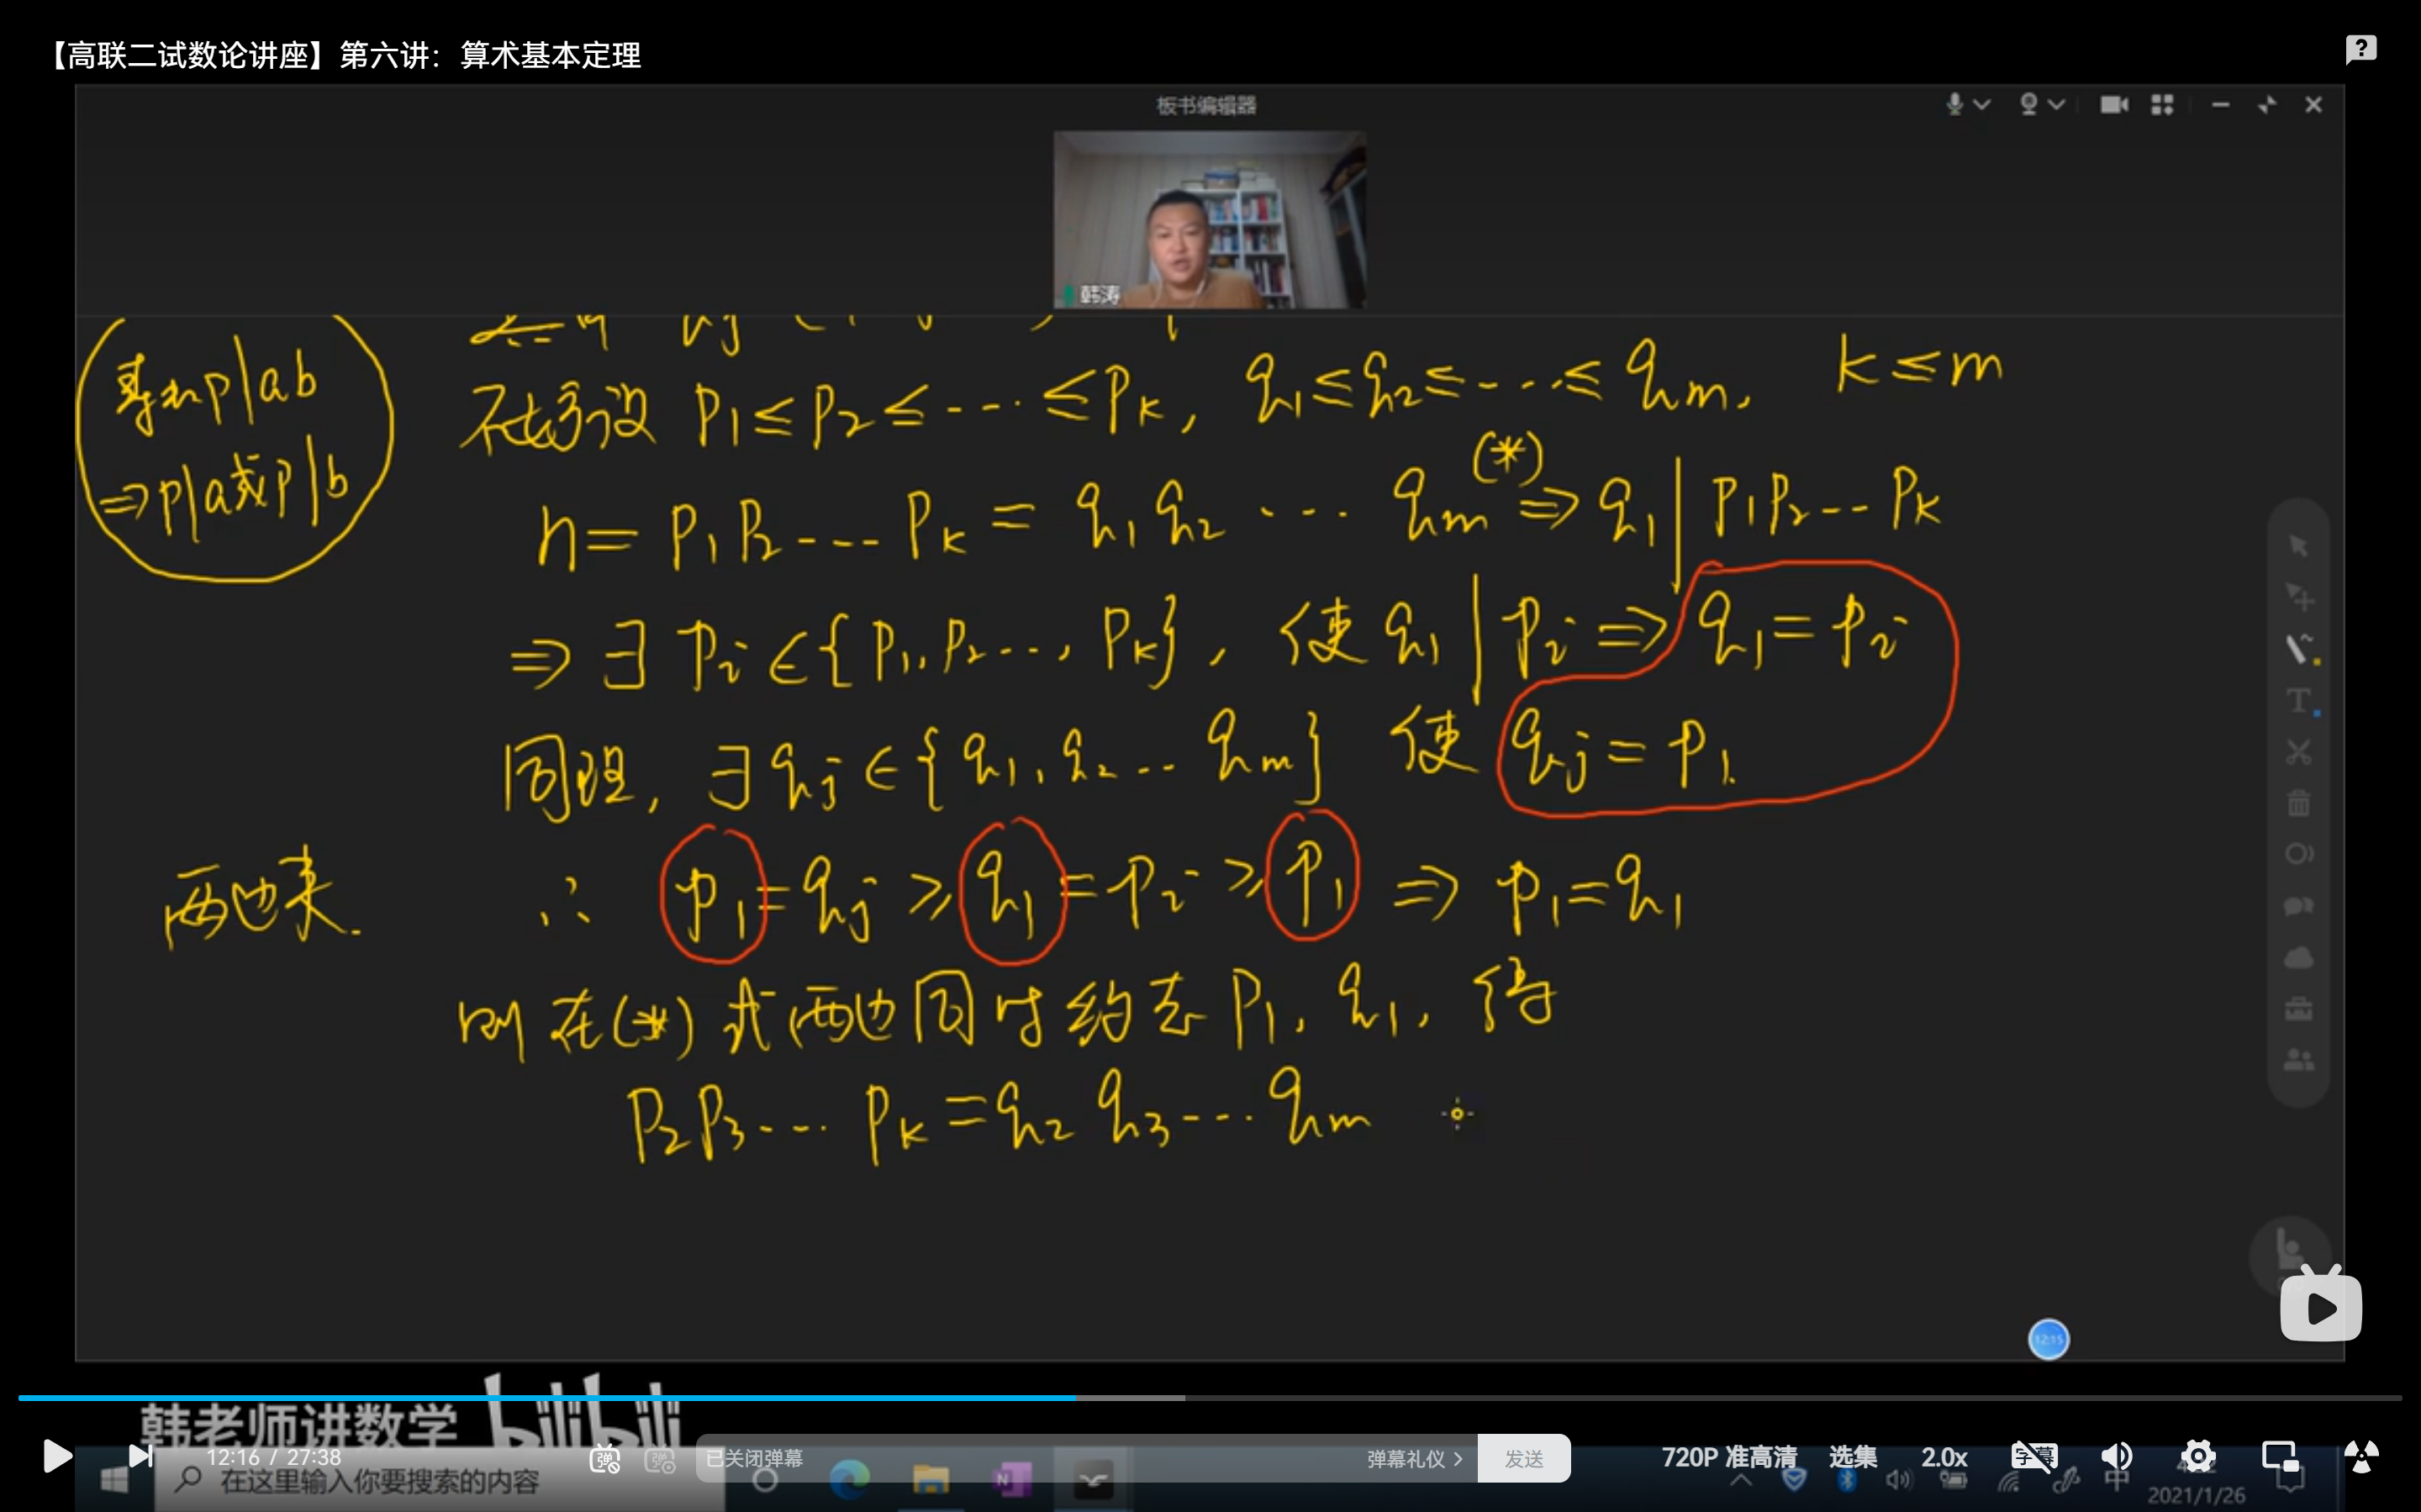 【高联二试数论讲座】第六讲：算术基本定理
板书编辑器
韩涛
不妨设 P₁≤P₂≤---·≤Pₖ, q₁≤q₂≤---·≤qₘ. k≤m
素数p|ab
⇒p|a或p|b
n= P₁P₂---- Pₖ = q₁q₂ ---- qₘ (*) ⇒ q₁|P₁P₂--Pₖ
⇒∃ Pᵢ∈{P₁,P₂···,Pₖ}, 使 q₁|Pᵢ ⇒ q₁=Pᵢ
同理, ∃qⱼ∈{q₁,q₂--qₘ} 使 qⱼ=P₁.
两边夹. ∴ P₁=qⱼ≥q₁=Pᵢ≥P₁ ⇒ P₁=q₁
则在(*)式两边同时约去P₁,q₁,得
P₂P₃---· Pₖ=q₂q₃---·qₘ
12:15
韩老师讲数学 bilibili
12:16 / 27:38
已关闭弹幕
弹幕礼仪 >
发送
720P 准高清
选集
2.0x
字幕
在这里输入你要搜索的内容
中
2021/1/26